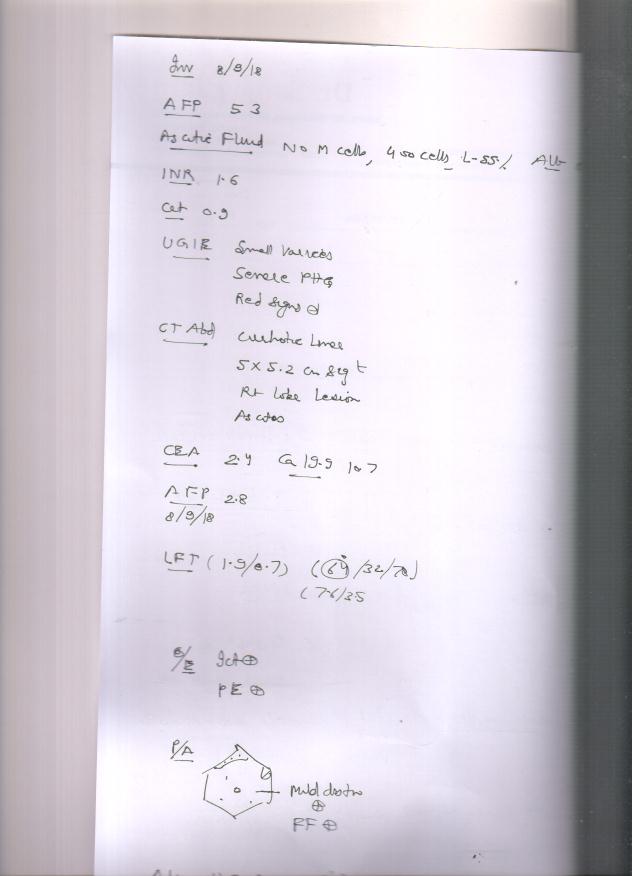 Inv 8/9/18
AFP 5.3
Ascitic Fluid No M cells, 450 cells L-55% Alb
INR 1.6
Cet 0.9
UGIE Small Varices
Severe PHG
Red Signs
CT Abd Cirrhotic Liver
5 X 5.2 cm Seg
Rt Lobe Lesion
Ascites
CEA 2.4 Ca 19.9 10.7
AFP 2.8
8/9/18
LFT (1.9/0.7) (64/32/78)
(7.6/3.5
O/E Ict ⊕
PE ⊕
P/A
Mild distn
⊕
FF ⊕